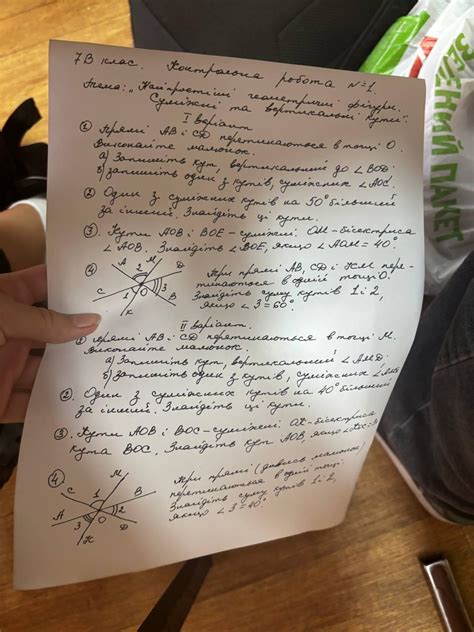 7В клас. Контрольна робота №1.
Тема: „Найпростіші геометричні фігури.
Суміжні та вертикальні кути".
I варіант
① Прямі AB і CD перетинаються в точці O.
Виконайте малюнок.
а) Запишіть кут, вертикальний до ∠BOD;
б) запишіть один з кутів, суміжних ∠AOC.
② Один з суміжних кутів на 50° більший
за інший. Знайдіть ці кути.
③. Кути AOB і BOE – суміжні. OM – бісектриса
∠AOB. Знайдіть ∠BOE, якщо ∠AOM = 40°.
④
A M D
2
1 O 3
C B
K
Три прямі AB, CD і KM пере-
тинаються в одній точці O.
Знайдіть суму кутів 1 і 2,
якщо ∠3 = 60°.
II варіант.
① Прямі AB і CD перетинаються в точці M.
Виконайте малюнок.
а) Запишіть кут, вертикальний ∠AMD,
б) запишіть один з кутів, суміжних
2. Один з суміжних кутів на 40° більший
за інший. Знайдіть ці кути.
③. Кути AOB і BOC – суміжні. OK – бісектриса
кута BOC. Знайдіть кут AOB, якщо
④
M
C B
1
A O 2
3 D
K
Три прямі (дивись малюнок)
перетинаються в одній точці
Знайдіть суму кутів 1 і 2,
якщо ∠3 = 40°.
ЗЕЛЕНИЙ ПАКЕТ